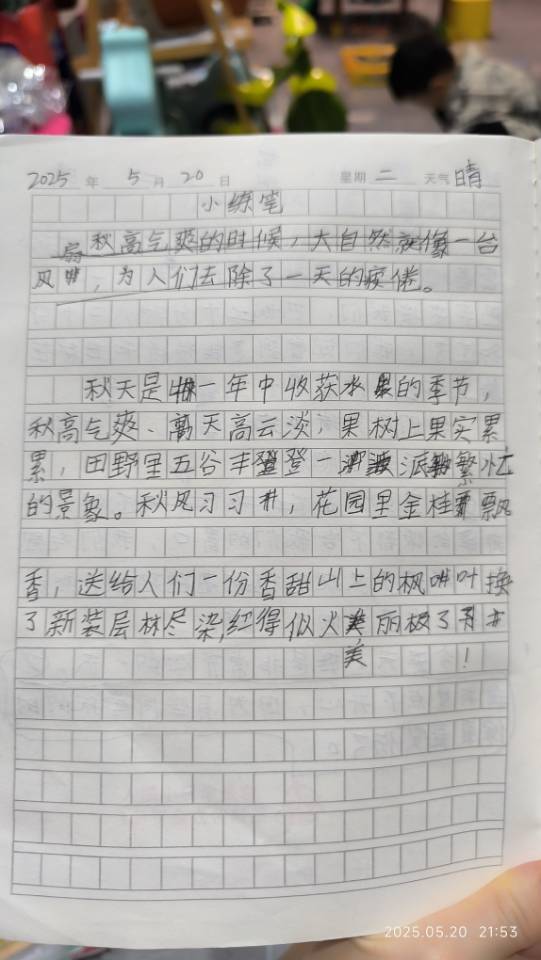 2025 年 5 月 20 日 星期 二 天气 晴
小练笔
秋高气爽的时候，大自然就像一台
风扇，为人们去除了一天的疲倦。
秋天是一年中收获水果的季节，
秋高气爽、天高云淡，果树上果实累
累，田野里五谷丰登一派繁忙
的景象。秋风习习，花园里金桂飘
香，送给人们一份香甜山上的枫叶换
了新装层林尽染,红得似火美丽极了
美 ！
2025.05.20 21:53